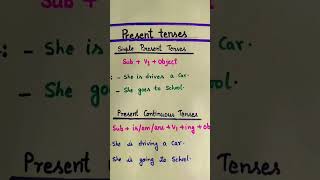 Present tenses
Simple Present Tenses
Sub + V₁ + Object
: - She is drives a Car.
- She goes to School.
Present Continuous Tenses
Sub + is/am/are + V₁ + ing + ob
She is driving a Car.
She is going To School.